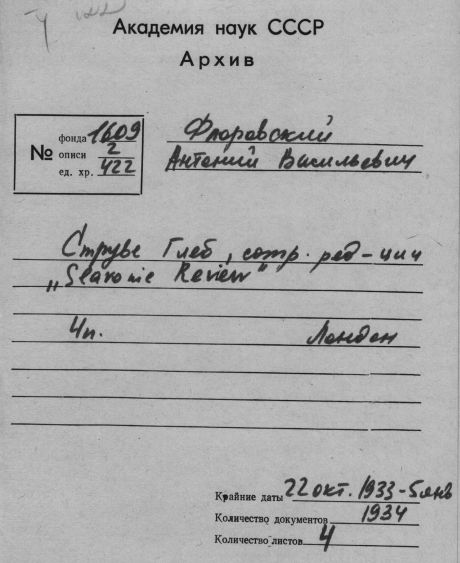 Академия наук СССР
Архив
№ фонда 1609
описи 2
ед. хр. 422
Флоровский
Антоний Васильевич
Струве Глеб, сотр. ред-ции
„Slavonic Review"
4п. Лондон
Крайние даты 22 окт. 1933-5 янв
Количество документов 1934
Количество листов 4